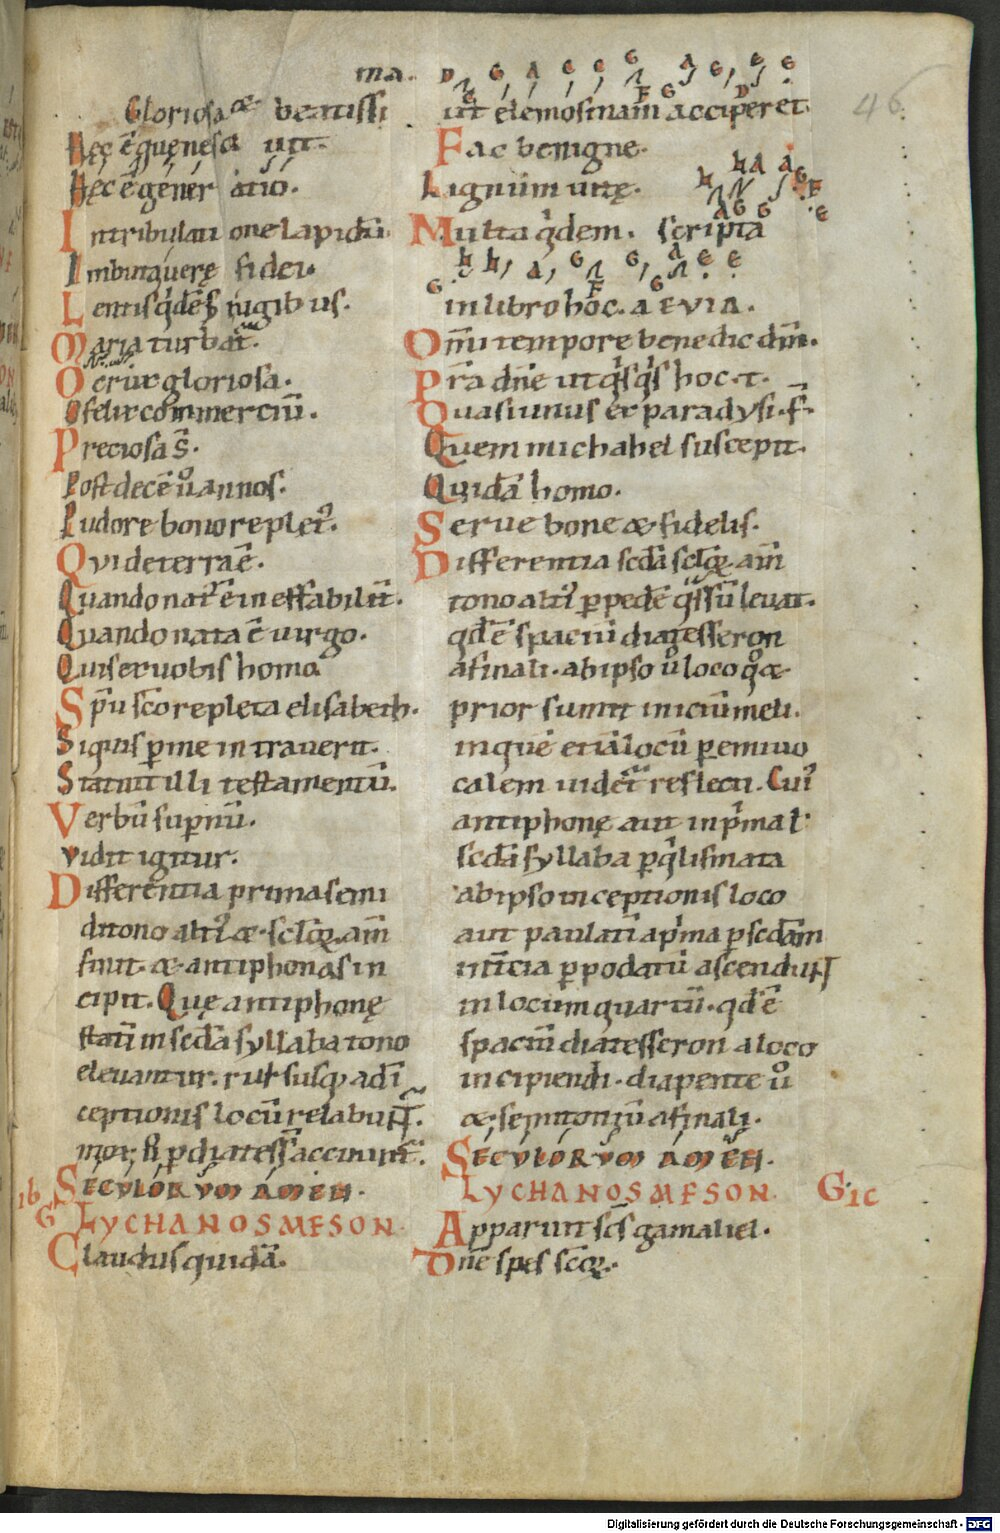 46
ma.
Gloriosa & beatissi
Hęc ē quę nescit
Hęc ē gener atio.
In tribulati one lapidū
Imbut querę fidei.
Lentis qdē frugib us.
Maria turbat.
O crux gloriosa.
O felix commerciū.
Preciosa s̄.
Post decē ů annos.
Pudore bono repler.
Qui de terra ē.
Quando nat' ē in effabilit.
Quando nata ē uirgo.
Quis er uobis homo
Spū sco repleta elisabeth.
Si quis p me intrauerit.
Statuit illi testamentū.
Verbū supnū.
vidit igitur.
Differentia prima semi
ditono alti' & sclōꝝ am̄
finit. & antiphonas in
cipit. Quę antiphonę
statī in scda syllaba tono
eleuantur. rursusq; ad ī
ceptionis locū relabunt̄.
SECVLORVM AMEN.
LYCHANOS MESON
Claudus quidā.
ut elemosinam acciperet.
Fac benigne.
Lignum uitę.
Multa qdem. scripta
in libro hoc. AEVIA.
Om̄i tempore benedic dm̄.
Pr̄a dn̄e ut qsqs hoc. t.
Quasi unus ex paradysi. f.
Quem michahel suscepit.
Quidā homo.
Serue bone & fidelis.
Differentia scda sclōꝝ am̄
tono alti' p pedē qssū leuat.
qd ē spaciū diatesseron
a finali. ab ipso ů loco q &
prior sumit iniciū meli.
in quē etiā locū p emiuo
calem uidet' reflecti. Cui'
antiphonę aut in pma l
scda syllaba p qlismata
ab ipso inceptionis loco
aut paulatī a pma p scdam
in tcia p podatū ascendunt
in locum quartū. qd ē
spaciū diatesseron a loco
incipiendi. diapente ů
& semitoniū a finali.
SECVLORVM AMEN.
LYCHANOS MESON G. ic
Apparuit scs gamaliel.
Dn̄e spes scōꝝ.
Digitalisierung gefördert durch die Deutsche Forschungsgemeinschaft - DFG